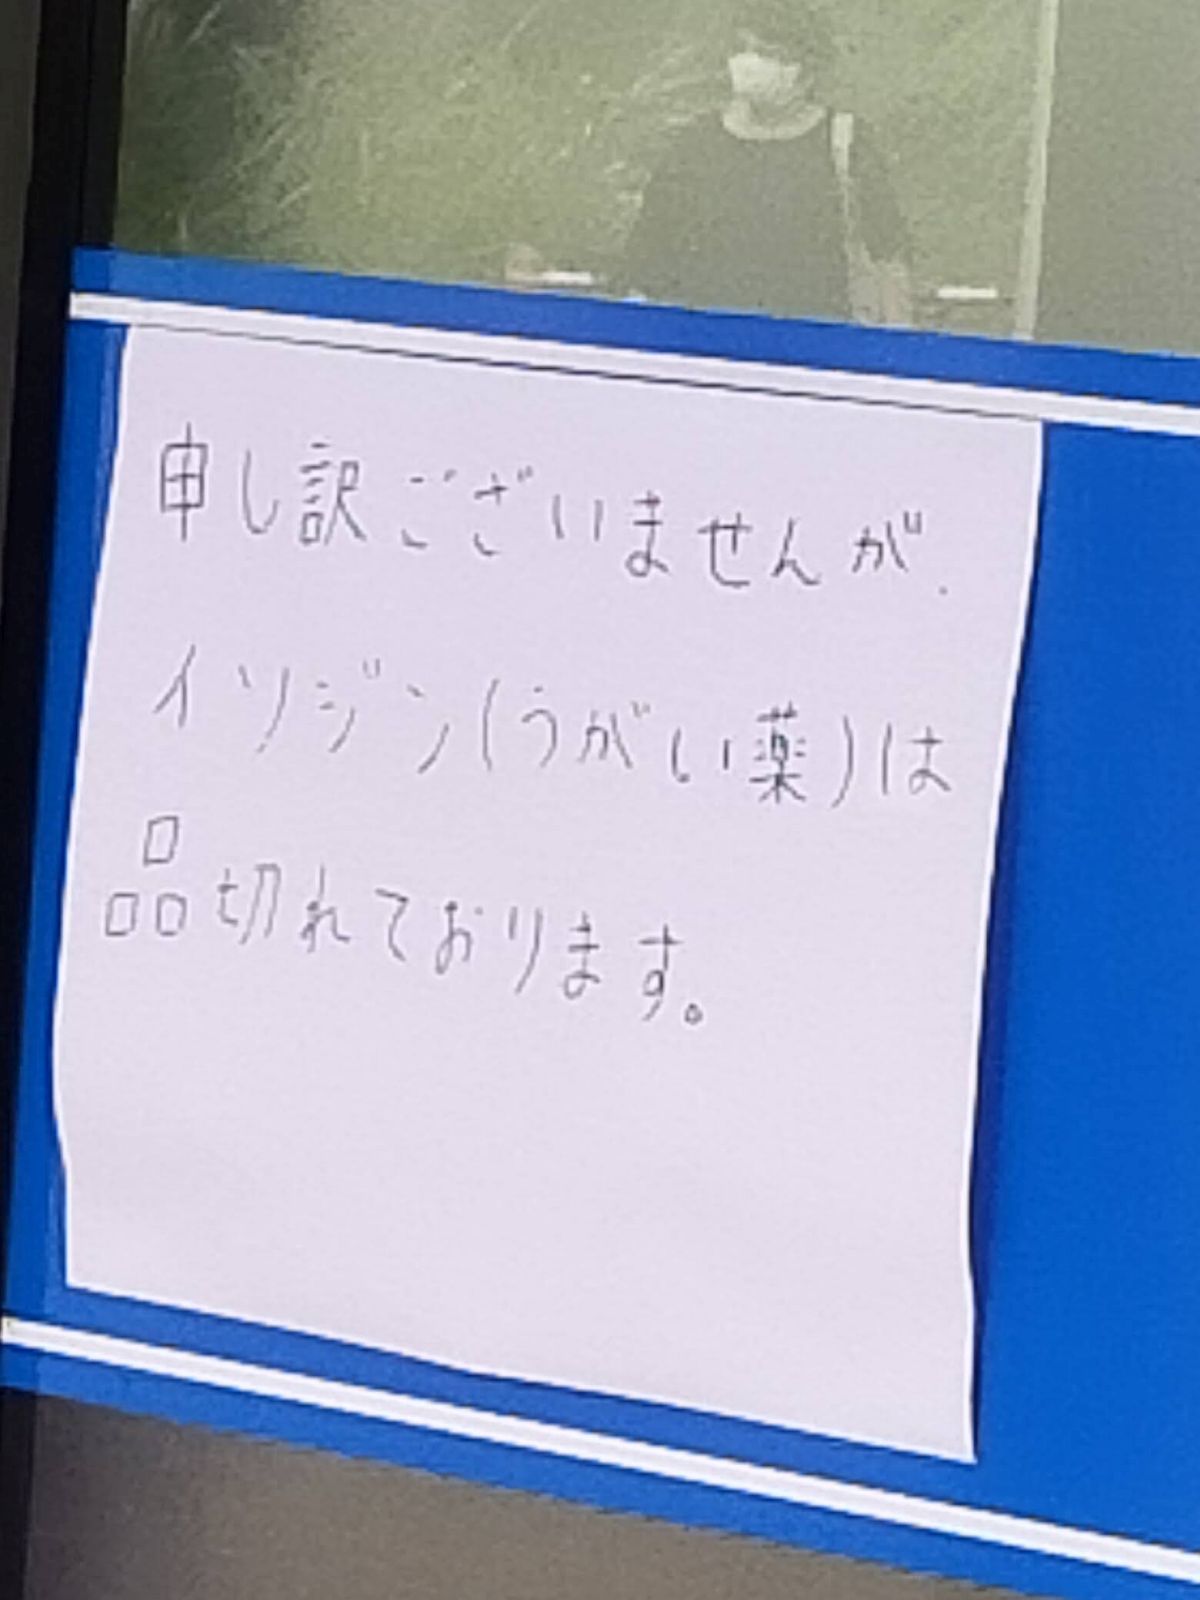 申し訳ございませんが、
イソジン(うがい薬)は
品切れております。